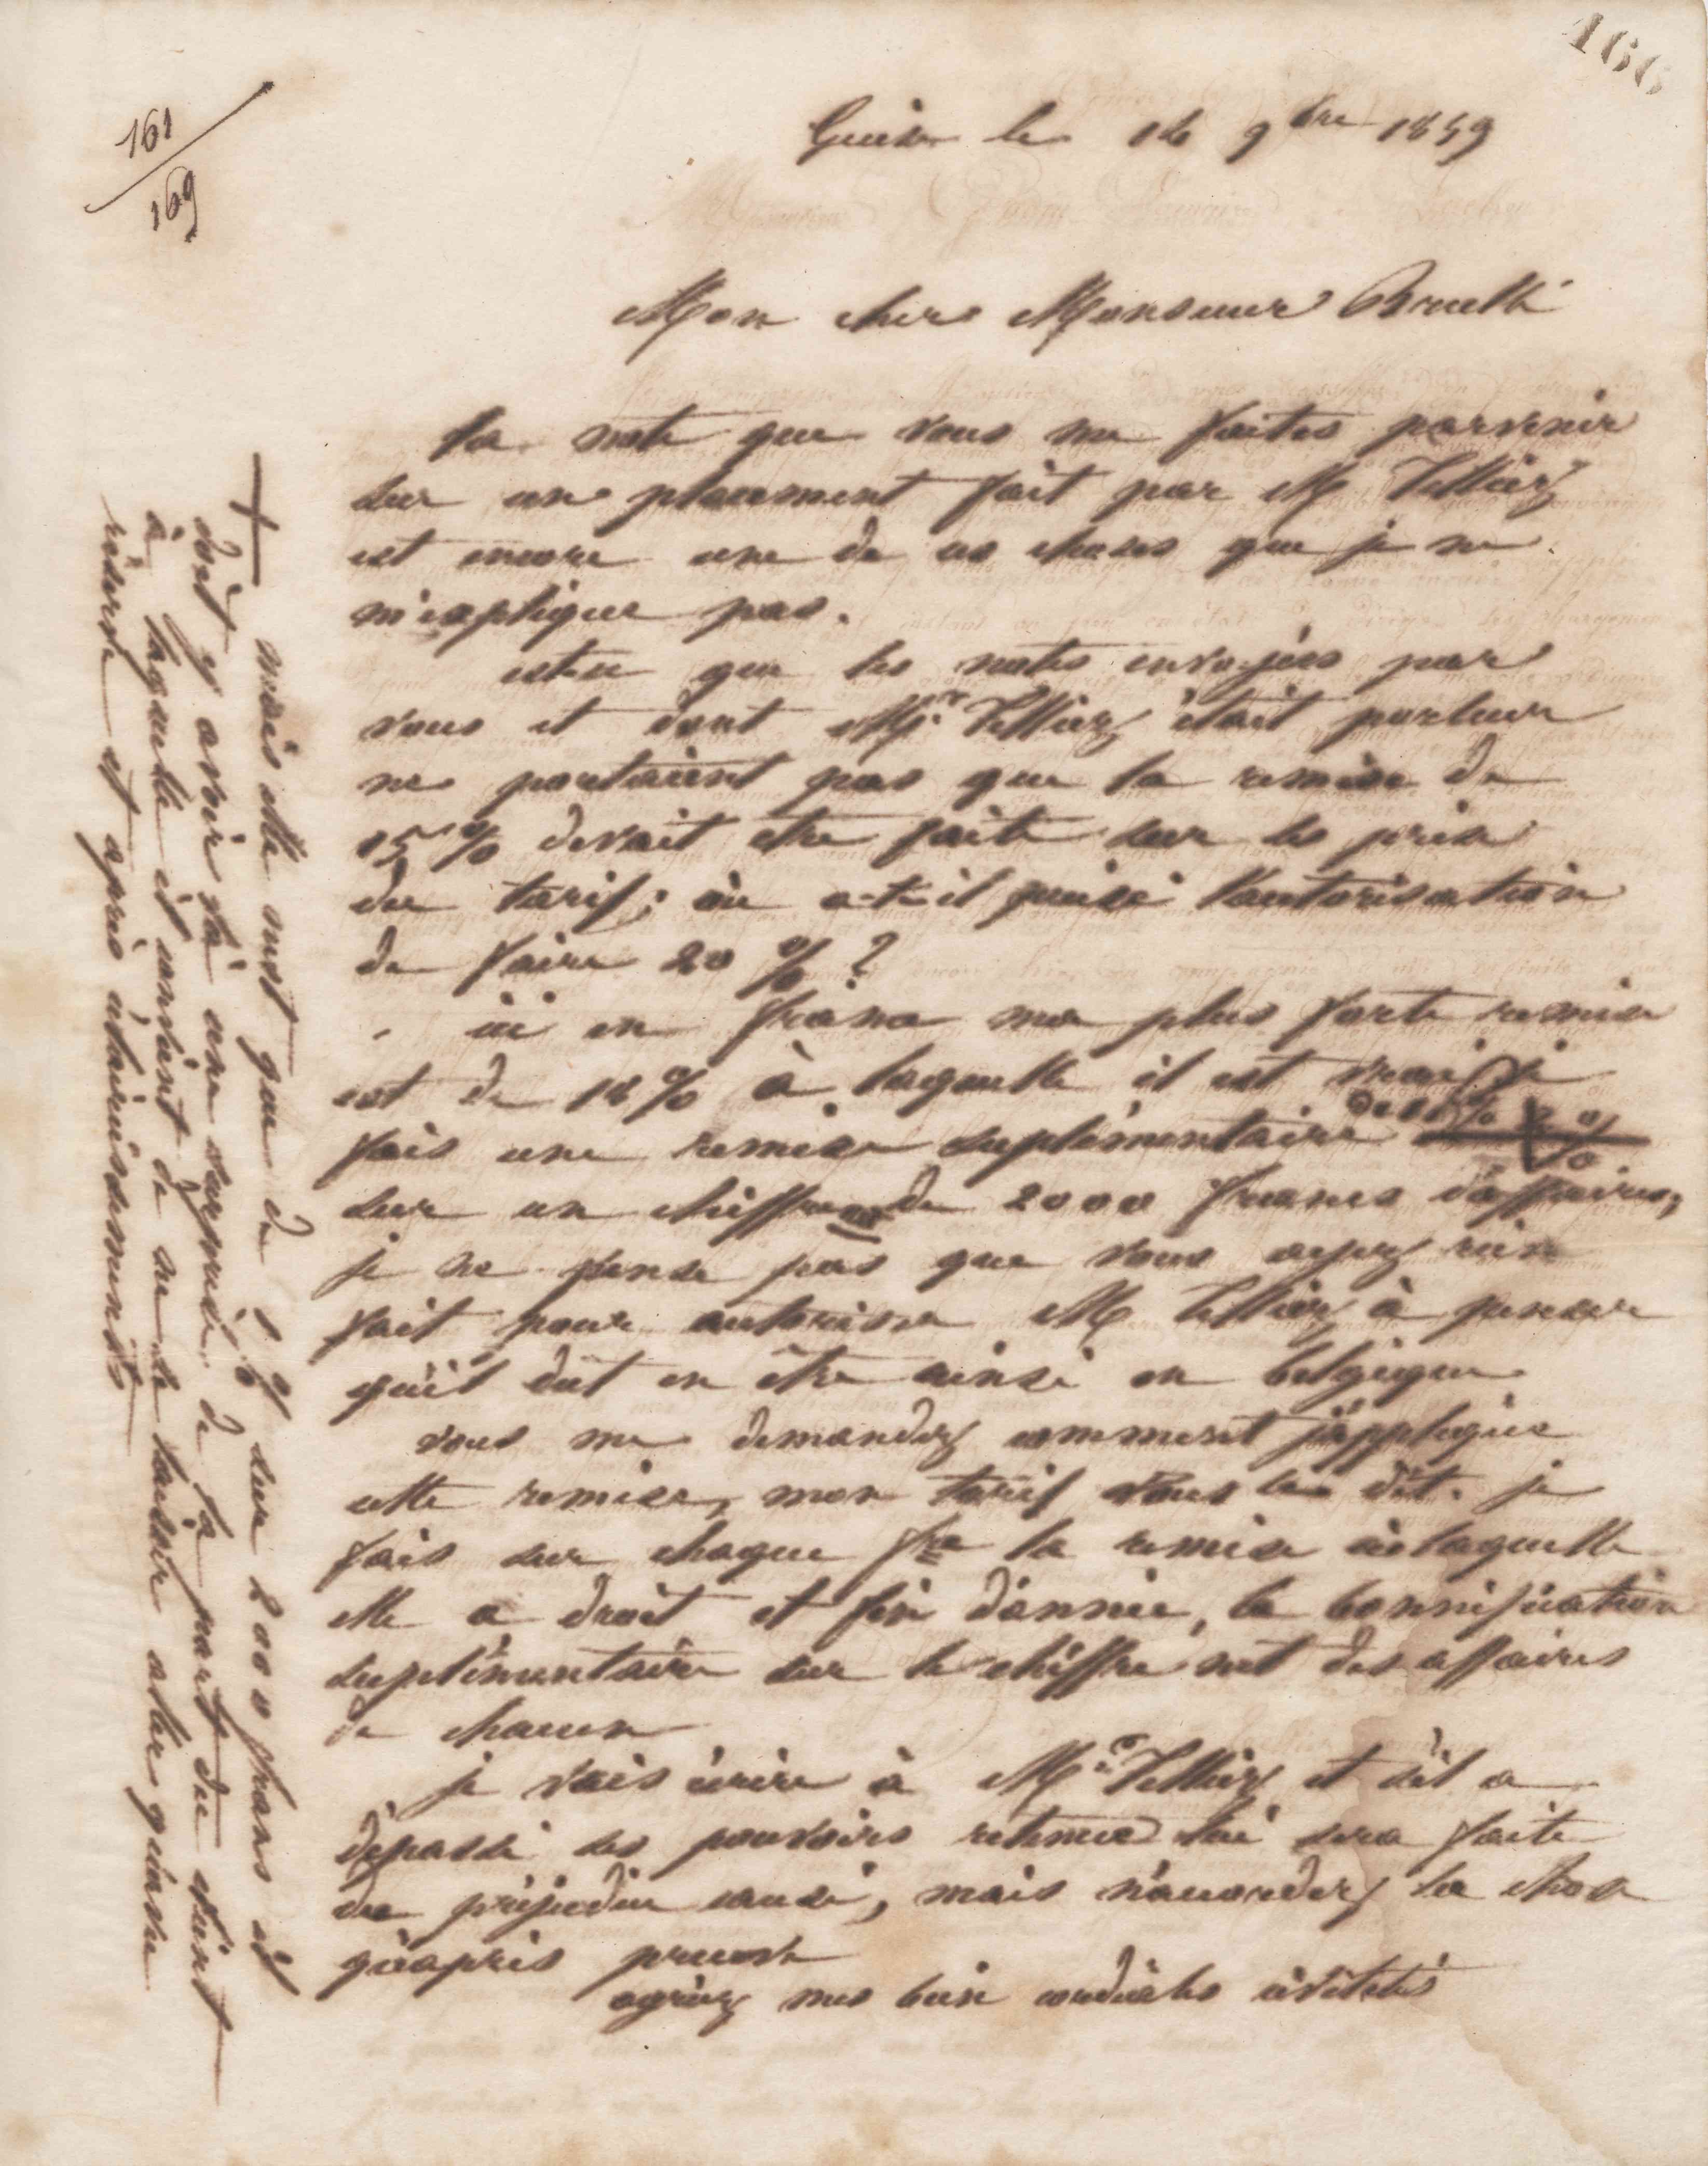 166
161
169
Guise le 16 9bre 1859
Mon cher Monsieur Brullé
la note que vous me faites parvenir
sur un placement fait par M Tellier
est encore une de ces choses que je ne
m'explique pas.
est-ce que les notes envoyées par
vous et dont Mr Tellier était porteur
ne portaient pas que la remise de
15 % devait etre faite sur les prix
du tarif; où a-t-il puisé l'autorisation
de faire 20 % ?
ici en france ma plus forte remise
est de 18 % à laquelle il est vrai je
fais une remise suplémentaire
sur un chiffre de 2000 francs d'affaires,
je ne pense pas que vous ayez rien
fait pour autoriser M Tellier à penser
qu'il dut en être ainsi en belgique
vous me demandez comment j'applique
cette remise, mon tarif vous le dit. je
fais sur chaque fre la remise à laquelle
elle a droit et fin d'année, la bonnification
suplémentaire sur le chiffre net des affaires
de chacun
je vais écrire à Mr Tellier et s'il a
dépassé ses pouvoirs retenue lui sera faite
du préjudice causé, mais n'accordez la chose
qu'après preuve
agréez mes bien cordiales civilités
+ mais elle n'est que de 1 % sur 2000 francs et
doit y avoir là une surprise de la part du client
à laquelle il convient de ne se laisser aller qu'avec
réserve et après éclaircissements